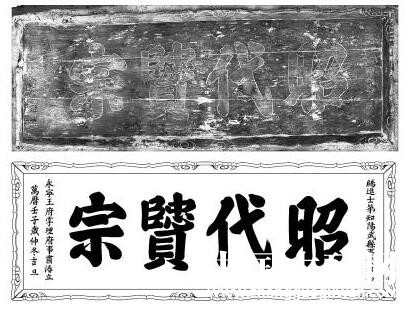 昭代賢宗
賜進士第知陽武縣事
昭代賢宗
永寧王府掌理府事肅溱立
萬曆壬子歲仲冬吉旦